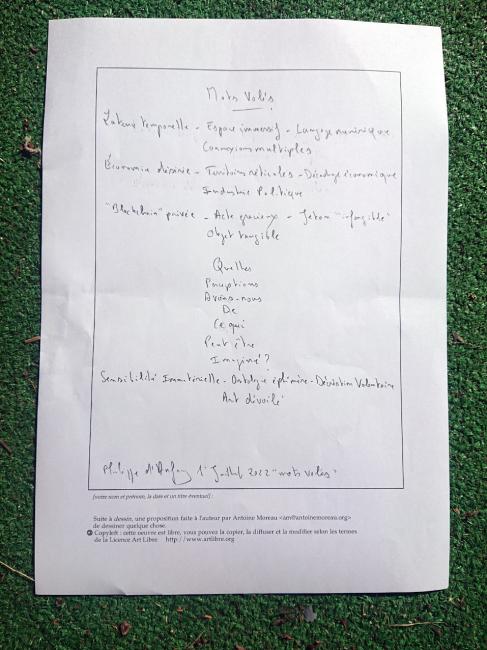 Mots Volés
temporelle - Espace immersif - Langage numérique
Connexions multiples
Économie - Territoires réticulaires - Décodage économique
Industrie Politique
"Blockchain" privée - Acte gracieux - Jeton "infongible"
Objet tangible
Quelles
Perceptions
Avons-nous
De
Ce qui
Peut être
Imaginé ?
Sensibilité Immatérielle - Ontologie éphémère - Déviation Volontaire
Art dévoilé
Philippe 1er Juillet 2022 "mots volés"
[votre nom et prénom, la date et un titre éventuel] :
Suite à dessein, une proposition faite à l'auteur par Antoine Moreau <am@antoinemoreau.org>
de dessiner quelque chose.
Copyleft : cette oeuvre est libre, vous pouvez la copier, la diffuser et la modifier selon les termes
de la Licence Art Libre http://www.artlibre.org